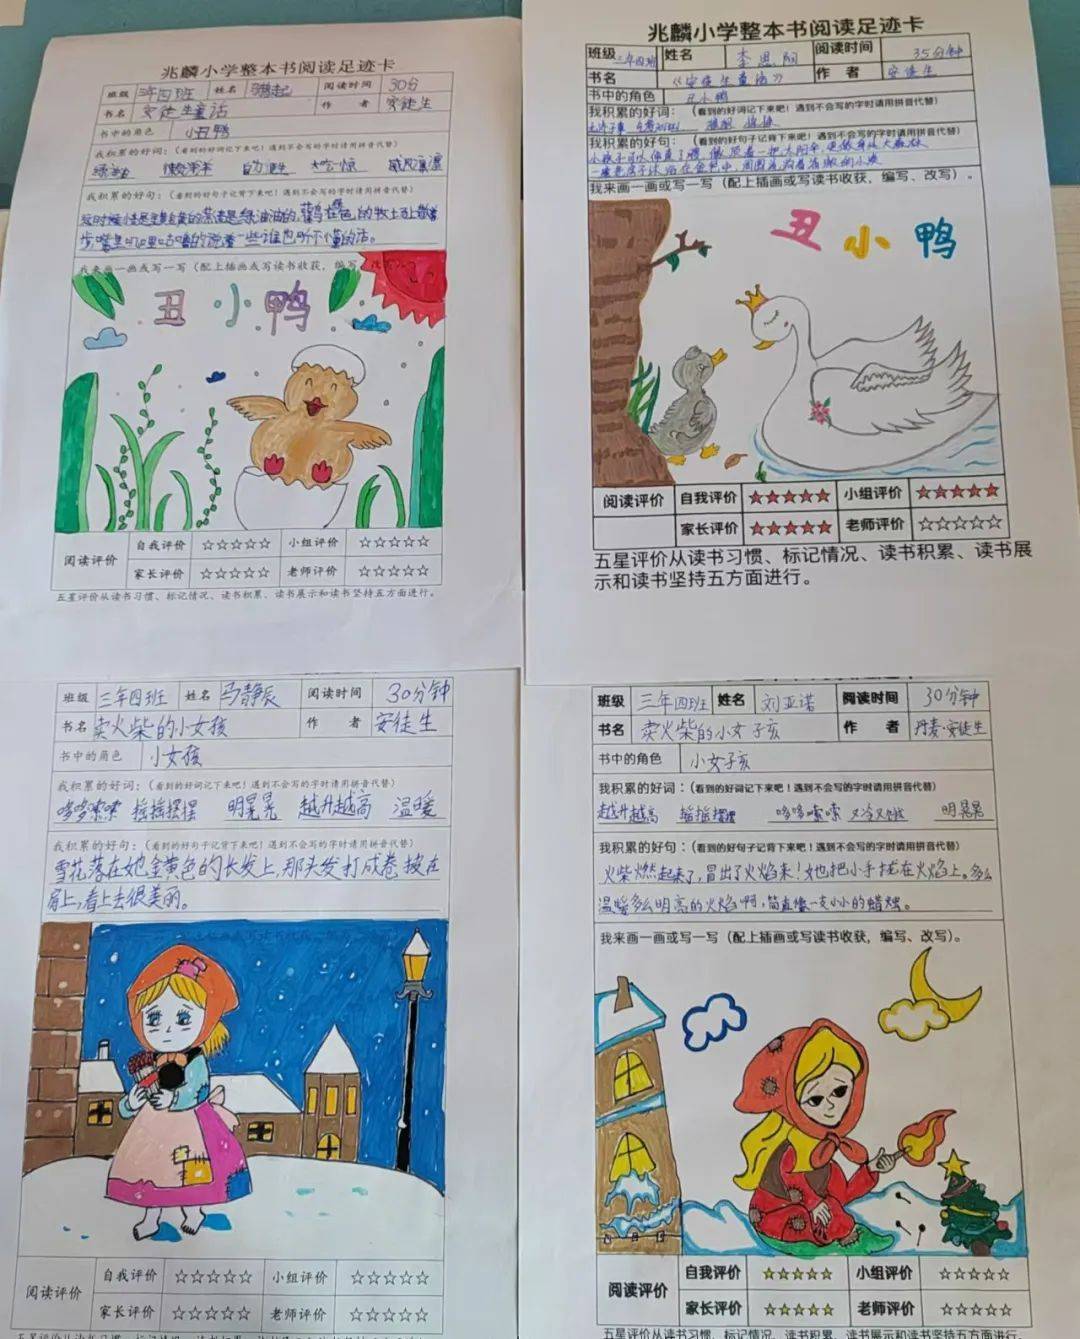 兆麟小学整本书阅读足迹卡
班级 三年四班 姓名 阅读时间 30分
书名 安徒生童话 作 者 安徒生
书中的角色 小丑鸭
我积累的好词:(看到的好词记下来吧!遇到不会写的字时请用拼音代替)
绿油油 懒洋洋 大吃一惊 威风凛凛
我积累的好句:(看到的好句子记背下来吧!遇到不会写的字时请用拼音代替)
这时候小麦是金黄的燕麦是绿油油的,鹳鸟在绿色的牧土场上散着
步,嘴里叽里咕噜的说着一些谁也听不懂的话。
我来画一画或写一写(配上插画或写读书收获,编写、改写)
丑小鸭
阅读评价 自我评价 ☆☆☆☆☆ 小组评价 ☆☆☆☆☆
家长评价 ☆☆☆☆☆ 老师评价 ☆☆☆☆☆
五星评价从读书习惯、标记情况、读书积累、读书展示和读书坚持五方面进行。
兆麟小学整本书阅读足迹卡
班级 三年四班 姓名 李思 阅读时间 35分钟
书名 《安徒生童话》 作 者 安徒生
书中的角色 丑小鸭
我积累的好词:(看到的好词记下来吧!遇到不会写的字时请用拼音代替)
我积累的好句:(看到的好句子记背下来吧!遇到不会写的字时请用拼音代替)
我来画一画或写一写(配上插画或写读书收获,编写、改写)。
丑小鸭
阅读评价 自我评价 ★★★★★ 小组评价 ★★★★★
家长评价 ★★★★★ 老师评价 ☆☆☆☆☆
五星评价从读书习惯、标记情况、读书积累、读书展
示和读书坚持五方面进行。
班级 三年四班 姓名 马静辰 阅读时间 30分钟
书名 卖火柴的小女孩 作 者 安徒生
书中的角色 小女孩
我积累的好词:(看到的好词记下来吧!遇到不会写的字时请用拼音代替)
哆哆嗦嗦 摇摇摆摆 明晃晃 越升越高 温暖
我积累的好句:(看到的好句子记背下来吧!遇到不会写的字时请用拼音代替)
雪花落在她金黄色的长发上,那头发打成卷披在
肩上,看上去很美丽。
阅读评价 自我评价 ☆☆☆☆☆ 小组评价 ☆☆☆☆☆
家长评价 ☆☆☆☆☆ 老师评价 ☆☆☆☆☆
班级 三年四班 姓名 刘亚诺 阅读时间 30分钟
书名 卖火柴的小女孩 作 者 丹麦·安徒生
书中的角色 小女孩
我积累的好词:(看到的好词记下来吧!遇到不会写的字时请用拼音代替)
越升越高 摇摇摆摆 哆哆嗦嗦 又冷又饿 明晃晃
我积累的好句:(看到的好句子记背下来吧!遇到不会写的字时请用拼音代替)
火柴燃起来了,冒出了火焰来!她把小手拢在火焰上。多么
温暖多么明亮的火焰啊,简直像一支小小的蜡烛。
我来画一画或写一写(配上插画或写读书收获,编写、改写)。
阅读评价 自我评价 ☆☆☆☆☆ 小组评价 ☆☆☆☆☆
家长评价 ☆☆☆☆☆ 老师评价 ☆☆☆☆☆
五星评价从读书习惯、标记情况、读书积累、读书展示和读书坚持五方面进行。